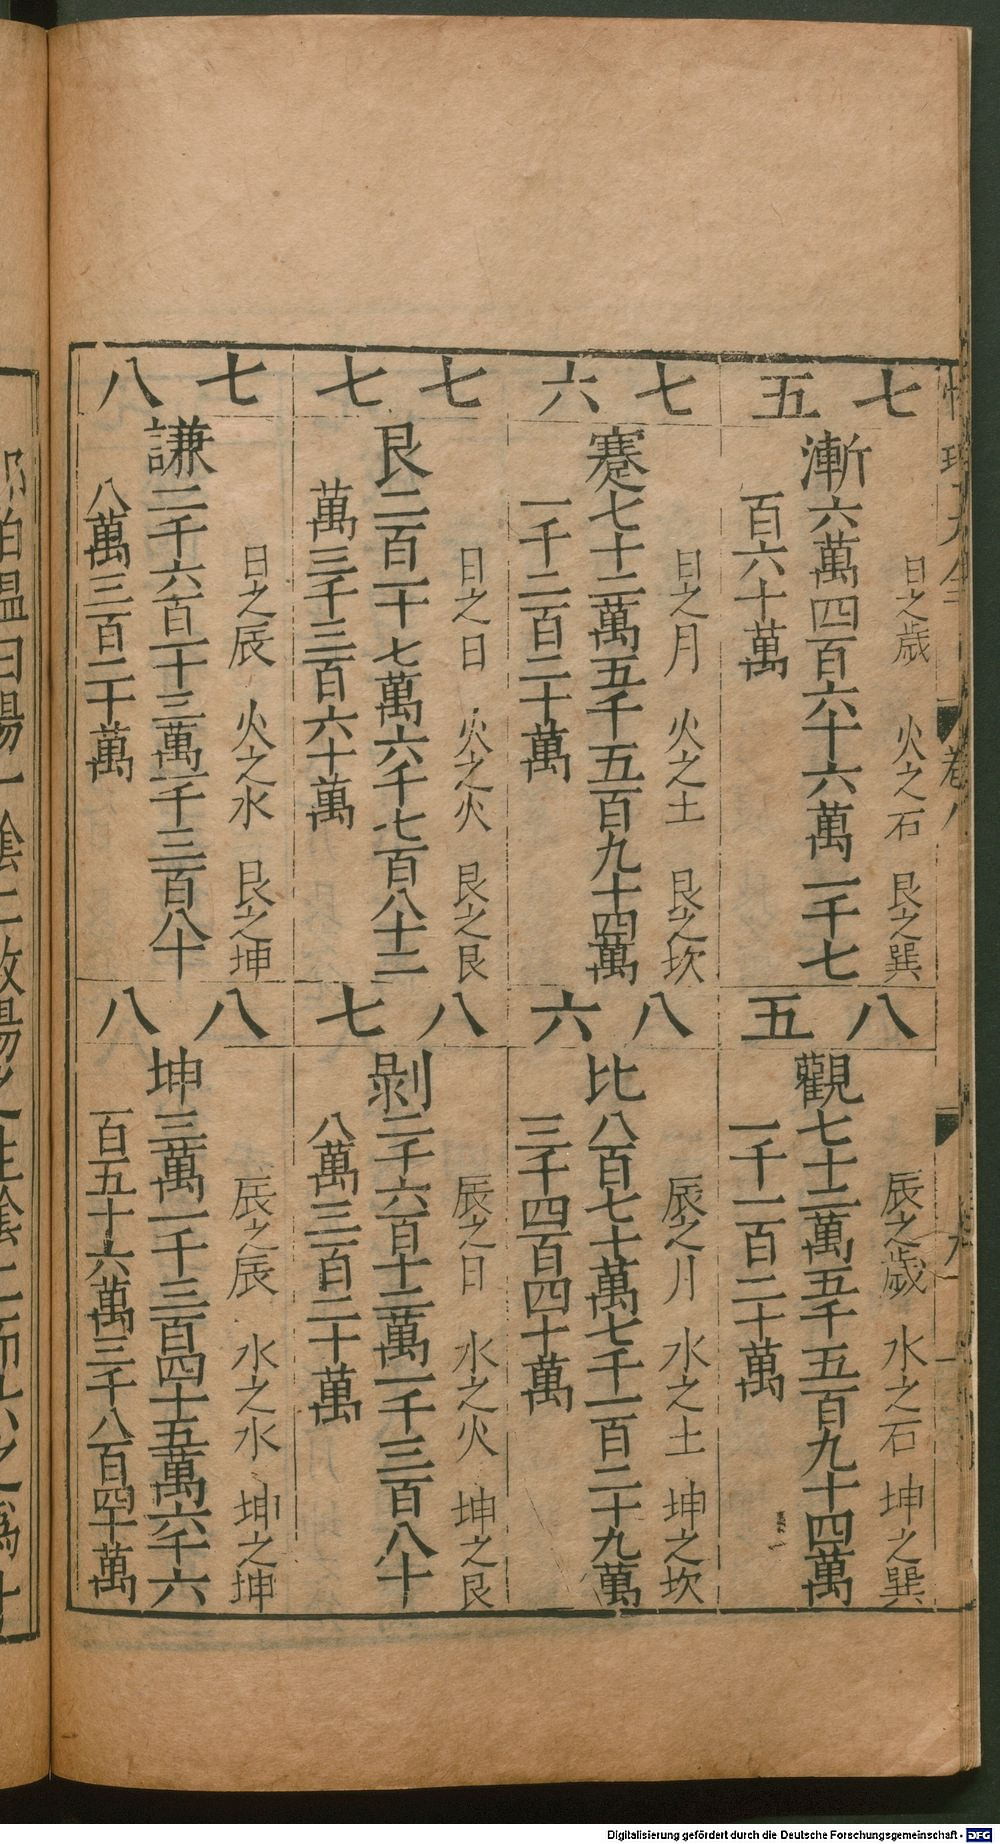 七 五
日之歳 火之石 艮之巽
漸六萬四百六十六萬一千七
百六十萬
七 六
日之月 火之土 艮之坎
蹇七十二萬五千五百九十四萬
一千二百二十萬
七 七
日之日 火之火 艮之艮
艮二百一十七萬六千七百八十二
萬三千三百六十萬
七 八
日之辰 火之水 艮之坤
謙二千六百一十三萬一千三百八十
八萬三百二十萬
八 五
辰之歳 水之石 坤之巽
觀七十二萬五千五百九十四萬
一千一百二十萬
八 六
辰之月 水之土 坤之坎
比八百七十萬七千一百二十九萬
三千四百四十萬
八 七
辰之日 水之火 坤之艮
剝二千六百十三萬一千三百八十
八萬三百二十萬
八 八
辰之辰 水之水 坤之坤
坤三萬一千三百四十五萬六千六
百五十六萬三千八百四十萬
卷八
伯溫曰陽一陰二故陽之生陰二而六之爲十
Digitalisierung gefördert durch die Deutsche Forschungsgemeinschaft - DFG